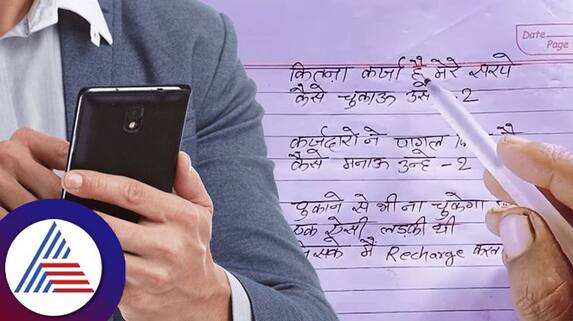 Date
Page
कितना कर्जा है मेरे सरपे
कैसे चुकाऊ उसे -2
कर्जदारो ने पागल
कैसे मनाऊ उन्हे -2
चुकाने से भी ना चुकेगा
एक ऐसी लडकी थी
जिसके मै Recharge